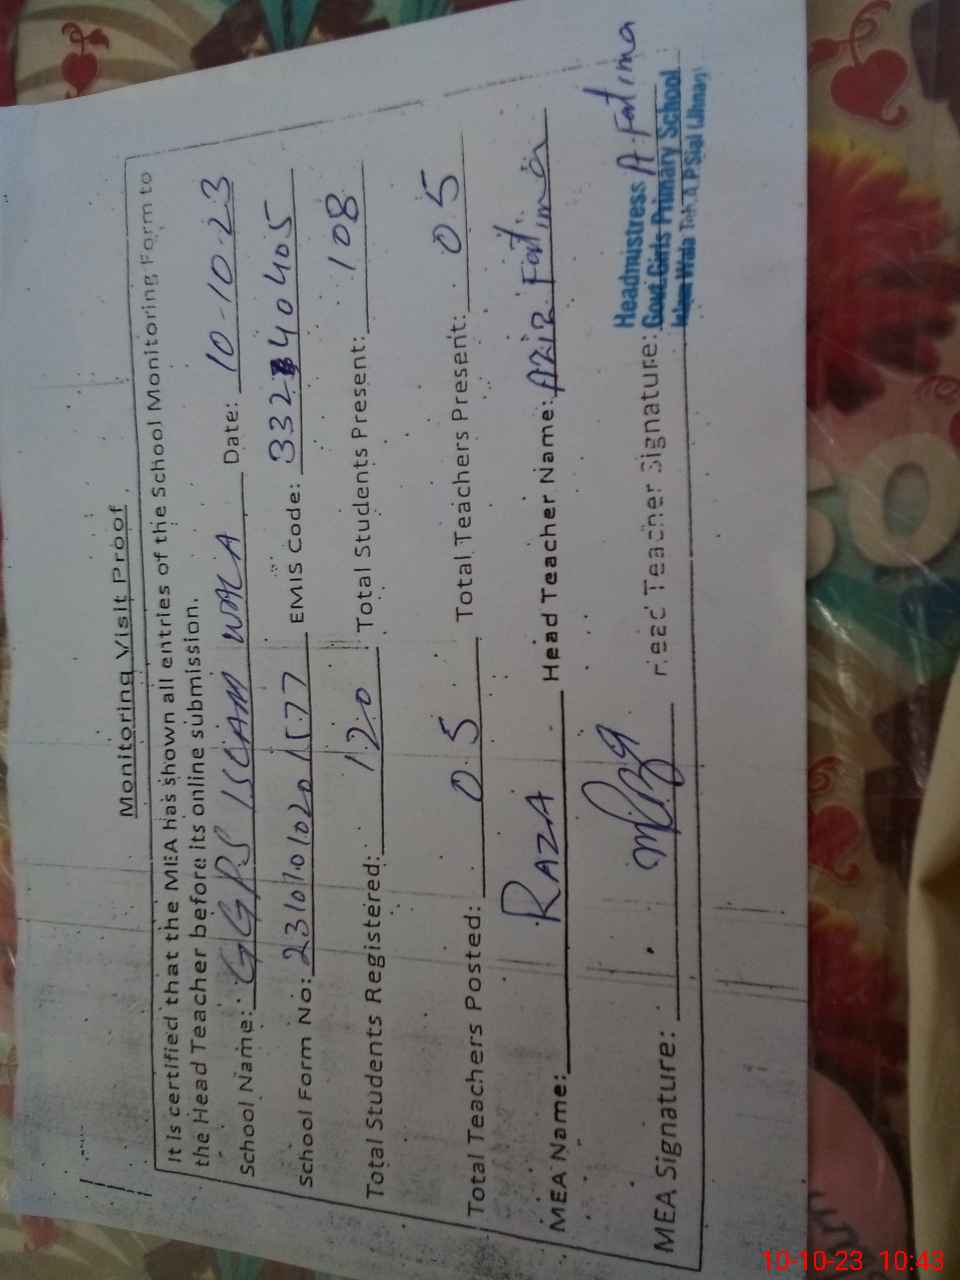 Monitoring Visit Proof
It is certified that the MEA has shown all entries of the School Monitoring Form to
the Head Teacher before its online submission.
School Name: GGPS ISLAM WALA Date: 10-10-23
School Form No: EMIS Code: 33240405
Total Students Registered: 120 Total Students Present: 108
Total Teachers Posted: 05 Total Teachers Present: 05
MEA Name: RAZA Head Teacher Name: Aziz Fatima
MEA Signature: Head Teacher Signature: A. Fatima
Headmustress
Govt. Girls Primary School
Wala Teh A.P Sial (Jhang)
10-10-23 10:43